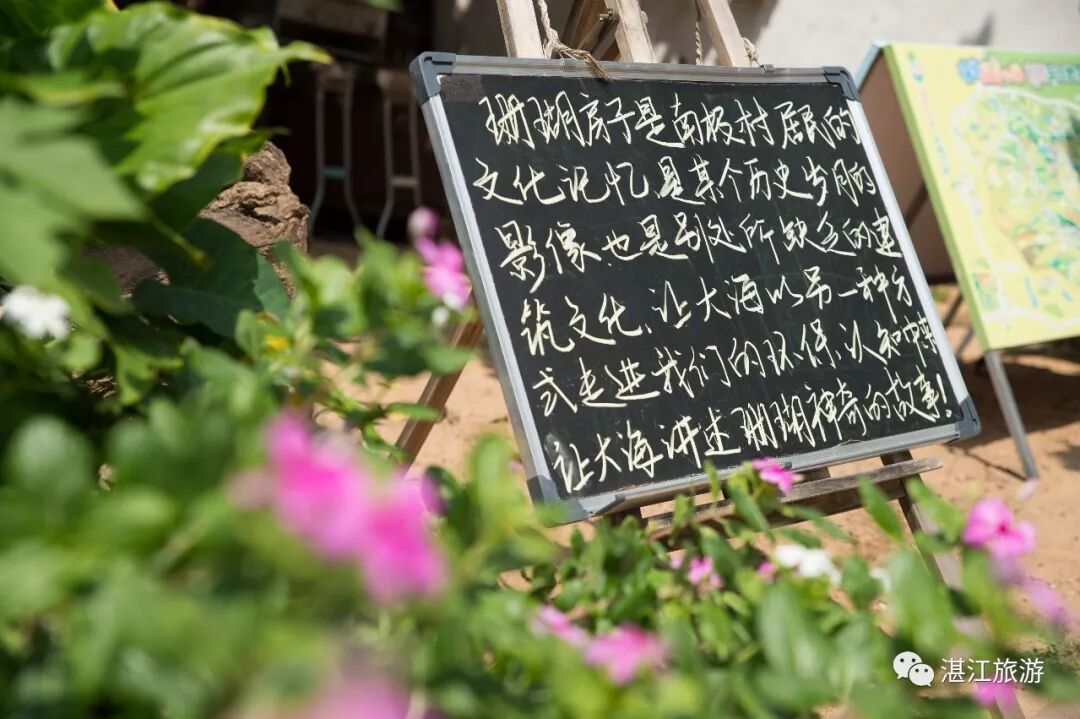 珊瑚房子是南极村居民的
文化记忆是某个历史岁月的
影像.也是别处所缺乏的建
筑文化、让大海以另一种方
式走进我们的环保、认知中
让大海讲述珊瑚神奇的故事！
湛江旅游